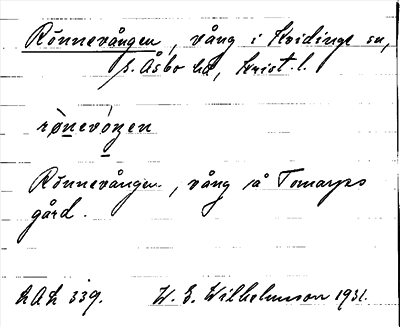 Rönnevången, vång i Kvidinge sn,
S. Åsbo hd, Krist. l.
rönevoŋen
Rönnevången, vång på Tomarps
gård.
LAL 339. W. E. Wilhelmson 1931.